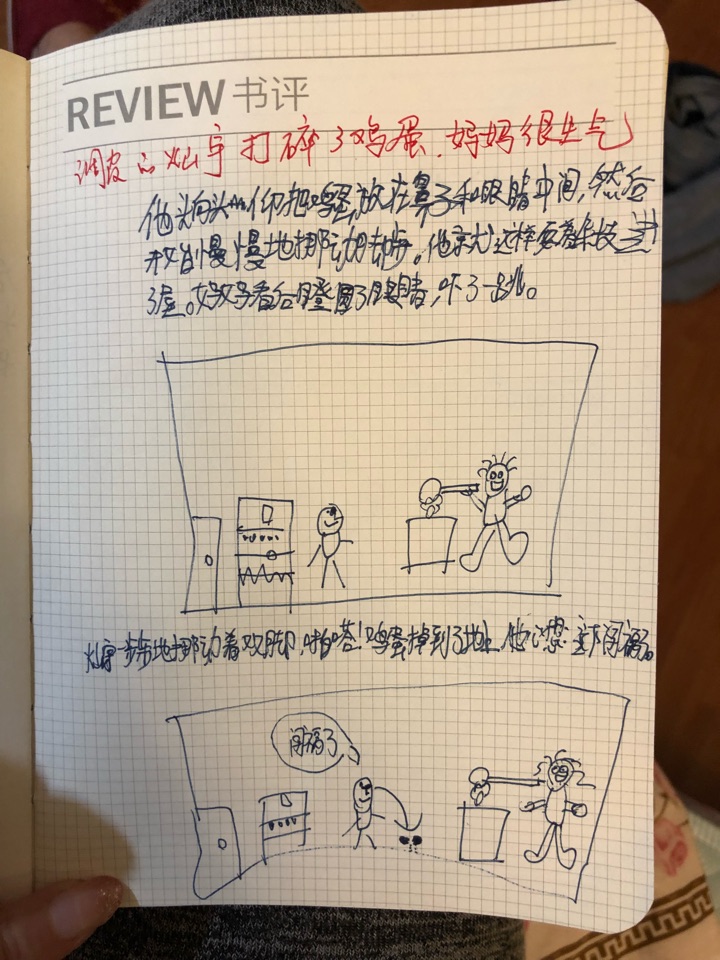 REVIEW 书评
调皮的灿宇打碎了鸡蛋.妈妈很生气
他头向一仰把鸡蛋放在鼻子和眼睛中间,然后
慢慢地挪动。他就这样耍着杂技进
了屋。妈妈看后瞪圆了眼睛,吓了一跳。
灿宇一步步地挪动着双脚,啪嗒!鸡蛋掉到了地上,他心想:这下闯祸了。
闯祸了